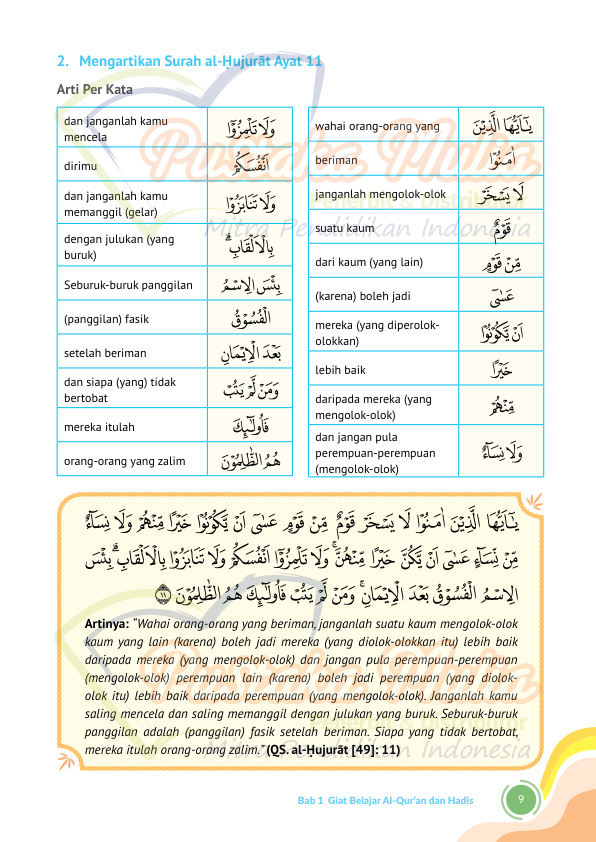 2. Mengartikan Surah al-Ḥujurāt Ayat 11
Arti Per Kata
dan janganlah kamu
mencela
وَلَا تَلْمِزُوْٓا
dirimu
اَنْفُسَكُمْ
dan janganlah kamu
memanggil (gelar)
وَلَا تَنَابَزُوْا
dengan julukan (yang
buruk)
بِالْاَلْقَابِۗ
Seburuk-buruk panggilan
بِئْسَ الِاسْمُ
(panggilan) fasik
الْفُسُوْقُ
setelah beriman
بَعْدَ الْاِيْمَانِ
dan siapa (yang) tidak
bertobat
وَمَنْ لَّمْ يَتُبْ
mereka itulah
فَاُولٰۤىِٕكَ
orang-orang yang zalim
هُمُ الظّٰلِمُوْنَ
wahai orang-orang yang
يٰٓاَيُّهَا الَّذِيْنَ
beriman
اٰمَنُوْا
janganlah mengolok-olok
لَا يَسْخَرْ
suatu kaum
قَوْمٌ
dari kaum (yang lain)
مِّنْ قَوْمٍ
(karena) boleh jadi
عَسٰٓى
mereka (yang diperolok-
olokkan)
اَنْ يَّكُوْنُوْا
lebih baik
خَيْرًا
daripada mereka (yang
mengolok-olok)
مِّنْهُمْ
dan jangan pula
perempuan-perempuan
(mengolok-olok)
وَلَا نِسَاۤءٌ
Pustaka Mulia
Penerbit & Distributor
Mitra Pendidikan Indonesia
يٰٓاَيُّهَا الَّذِيْنَ اٰمَنُوْا لَا يَسْخَرْ قَوْمٌ مِّنْ قَوْمٍ عَسٰٓى اَنْ يَّكُوْنُوْا خَيْرًا مِّنْهُمْ وَلَا نِسَاۤءٌ
مِّنْ نِّسَاۤءٍ عَسٰٓى اَنْ يَّكُنَّ خَيْرًا مِّنْهُنَّۚ وَلَا تَلْمِزُوْٓا اَنْفُسَكُمْ وَلَا تَنَابَزُوْا بِالْاَلْقَابِۗ بِئْسَ
الِاسْمُ الْفُسُوْقُ بَعْدَ الْاِيْمَانِۚ وَمَنْ لَّمْ يَتُبْ فَاُولٰۤىِٕكَ هُمُ الظّٰلِمُوْنَ ١١
Artinya: "Wahai orang-orang yang beriman, janganlah suatu kaum mengolok-olok
kaum yang lain (karena) boleh jadi mereka (yang diolok-olokkan itu) lebih baik
daripada mereka (yang mengolok-olok) dan jangan pula perempuan-perempuan
(mengolok-olok) perempuan lain (karena) boleh jadi perempuan (yang diolok-
olok itu) lebih baik daripada perempuan (yang mengolok-olok). Janganlah kamu
saling mencela dan saling memanggil dengan julukan yang buruk. Seburuk-buruk
panggilan adalah (panggilan) fasik setelah beriman. Siapa yang tidak bertobat,
mereka itulah orang-orang zalim." (QS. al-Ḥujurāt [49]: 11)
Pustaka Mulia
Penerbit & Distributor
Mitra Pendidikan Indonesia
Bab 1 Giat Belajar Al-Qur'an dan Hadis
9